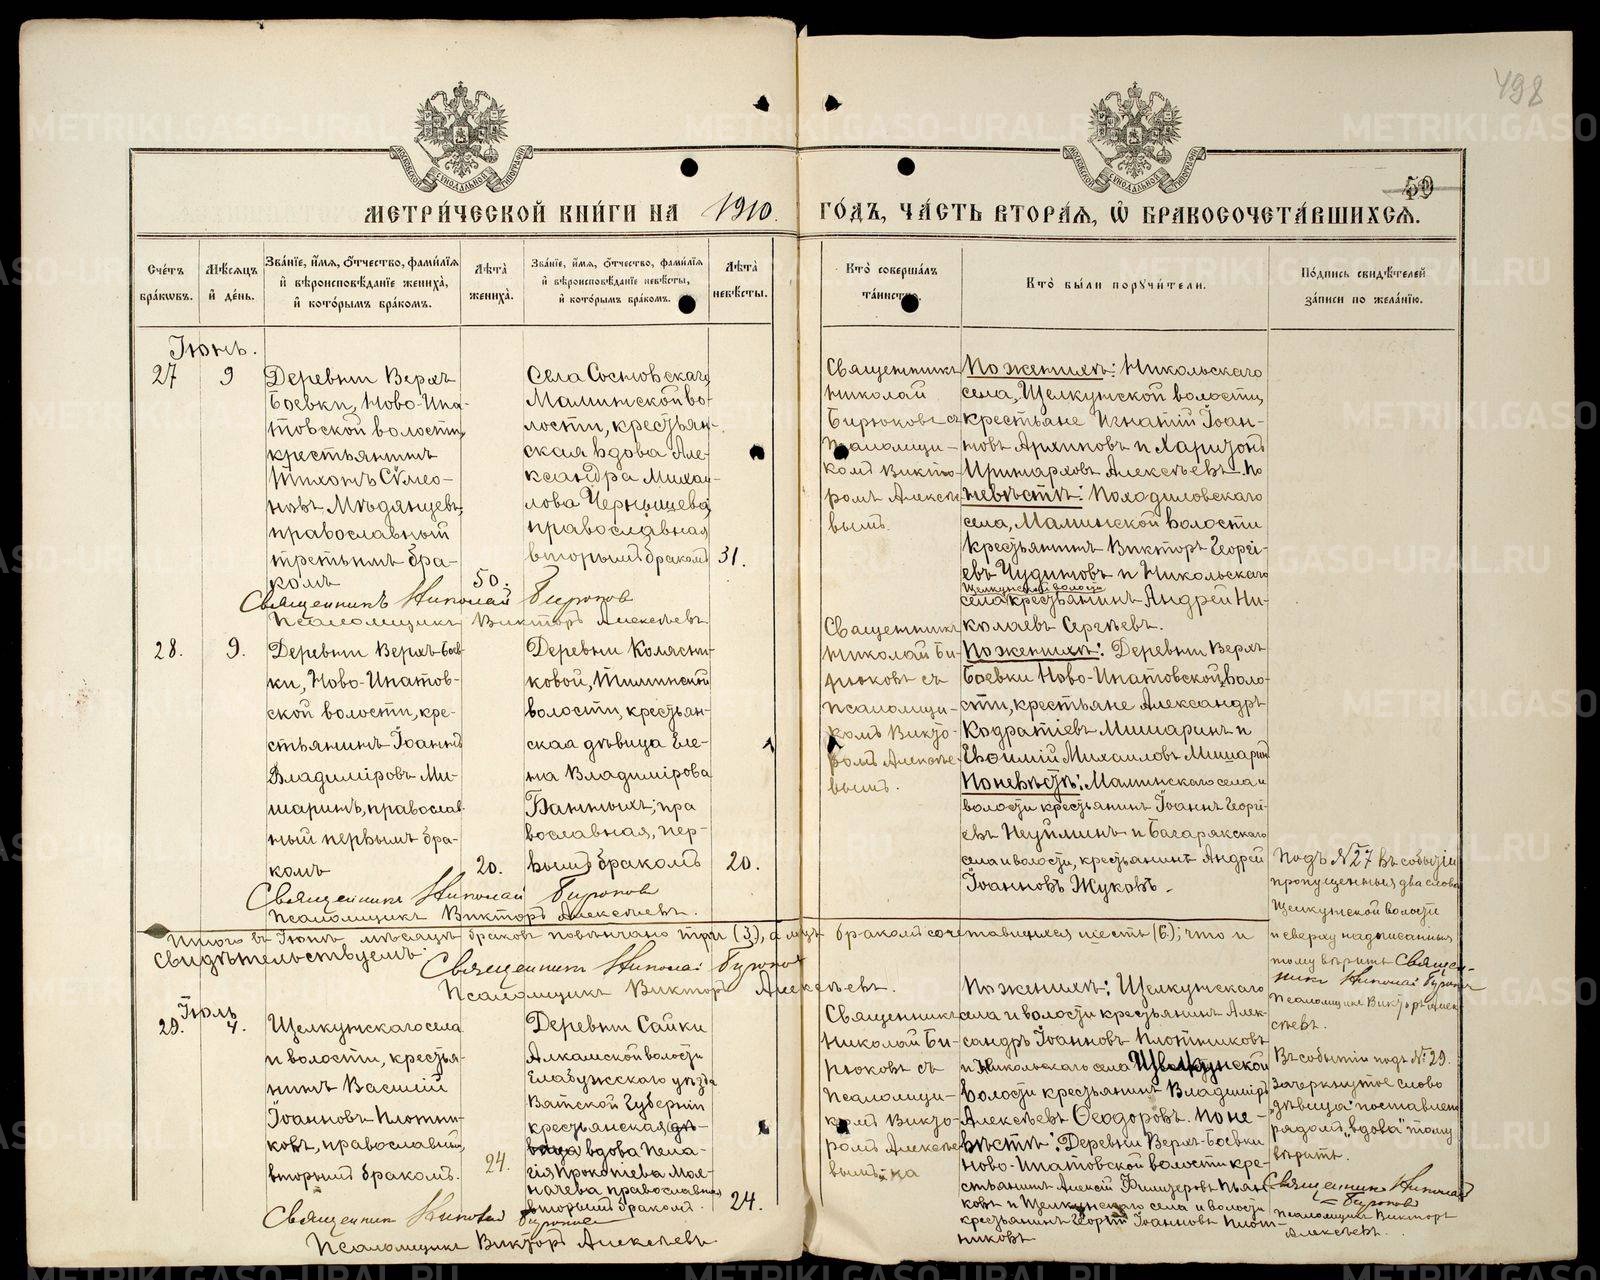 498
50
МЕТРИ́ЧЕСКОЙ КНИ́ГИ НА 1910. ГО́ДЪ, ЧА́СТЬ ВТОРА́Я, Ѿ БРАКОСОЧЕТА́ВШИХСЯ.
Сче́тъ бра́ковъ.
Мѣ́сяцъ и҆ де́нь.
Зва́нїе, и҆́мя, ѻ҆́тчество, фами́лїя и҆ вѣроисповѣ́данїе жениха̀, и҆ кото́рымъ бра́комъ.
Лѣ́та жениха̀.
Зва́нїе, и҆́мя, ѻ҆́тчество, фами́лїя и҆ вѣроисповѣ́данїе невѣ́сты, и҆ кото́рымъ бра́комъ.
Лѣ́та невѣ́сты.
Кто̀ соверша́лъ та́инство.
Кто̀ бы́ли поручи́тели.
По́дпись свидѣ́телей за́писи по жела́нїю.
Іюнь.
27
9
Деревни Верхъ
Боевки, Ново-Ипа-
товской волости,
крестьянинъ
Тихонъ Сѵмео-
новъ Мѣдянцевъ,
православный
третьимъ бра-
комъ
50.
Села Сосновскаго
Маминской во-
лости, крестьян-
ская вдова Але-
ксандра Михаи-
лова Чернышева
православная
вторымъ бракомъ
31.
Священникъ
Николай
Бирюковъ съ
Псаломщи-
комъ Викто-
ромъ Алексѣе
вымъ.
По женихѣ: Никольскаго
села, Щелкунской волости,
крестьяне Игнатій Іоан-
новъ Архиповъ и Харитонъ
Иринарховъ Алексѣевъ. По
невѣстѣ: Походиловскаго
села, Маминской волости
крестьянинъ Викторъ Георгі-
евъ Чудиновъ и Никольскаго
Щелкунской волости
села крестьянинъ Андрей Ни-
колаевъ Сергѣевъ.
Священникъ Николай Бирюков
Псаломщикъ Викторъ Алексѣевъ
28.
9.
Деревни Верхъ-Боев-
ки, Ново-Ипатов-
ской волости, кре-
стьянинъ Іоаннъ
Владиміровъ Ми-
шаринъ, православ-
ный первымъ бра-
комъ
20.
Деревни Колясни-
ковой, Тиминской
волости, крестьян-
ская дѣвица Еле-
на Владимірова
Банныхъ, пра
вославная, пер-
вымъ бракомъ
20.
Священникъ
Николай Би-
рюковъ съ
Псаломщи-
комъ Викто-
ромъ Алексѣе-
вымъ.
По женихѣ: Деревни Верхъ
Боевки Ново-Ипатовской воло-
сти, крестьяне Александръ
Кодратіевъ Мишаринъ и
Евѳимій Михаиловъ Мишаринъ
По невѣстѣ: Маминскаго села и
волости крестьянинъ Іоаннъ Георгі-
евъ Неуйминъ и Багарякскаго
села и волости, крестьянинъ Андрей
Іоанновъ Жуковъ.
Священникъ Николай Бирюков
Псаломщикъ Викторъ Алексѣевъ.
Подъ № 27 въ событіи
пропущенныя два слова
Щелкунской волости
и сверху надписанныя
тому вѣрить Священ-
никъ Николай Бирюков
Псаломщикъ Викторъ Алек-
сѣевъ.
Итого въ Іюнѣ мѣсяцѣ браковъ повѣнчано три (3), а лицъ бракомъ сочетавшихся шесть (6); что и
свидѣтельствуемъ:
Священникъ Николай Бирюков
Псаломщикъ Викторъ Алексѣевъ.
Іюль
29.
4.
Щелкунскаго села
и волости, крестья-
нинъ Василій
Іоанновъ Плотни-
ковъ, православный,
вторымъ бракомъ.
24.
Деревни Сайки
Алкамской волости
Елабужскаго уѣзда
Вятской Губерніи
крестьянская дѣ-
вица вдова Пела-
гія Прокопіева Мол-
чачева, православная
вторымъ бракомъ.
24.
Священникъ
Николай Би-
рюковъ съ
Псаломщи-
комъ Викто-
ромъ Алексѣе-
вымъ.
По женихѣ: Щелкунскаго
села и волости крестьянинъ Алек-
сандръ Іоанновъ Плотниковъ
и Никольскаго села Щелкунской
волости крестьянинъ Владиміръ
Алексѣевъ Ѳеодоровъ. По не-
вѣстѣ: Деревни Верхъ-Боевки
Ново-Ипатовской волости кре-
стьянинъ Алексій Пьян-
ковъ и Щелкунскаго села и волости
крестьянинъ Георгій Іоанновъ Плот-
никовъ
Въ событіи подъ № 29.
зачеркнутое слово
„дѣвица" поставлен
рядомъ „вдова" тому
вѣрить.
Священникъ Николай
Бирюков
Псаломщикъ Викторъ
Алексѣевъ.
Священник Николай Бирюков
Псаломщикъ Викторъ Алексѣевъ.
METRIKI.GASO-URAL.RU